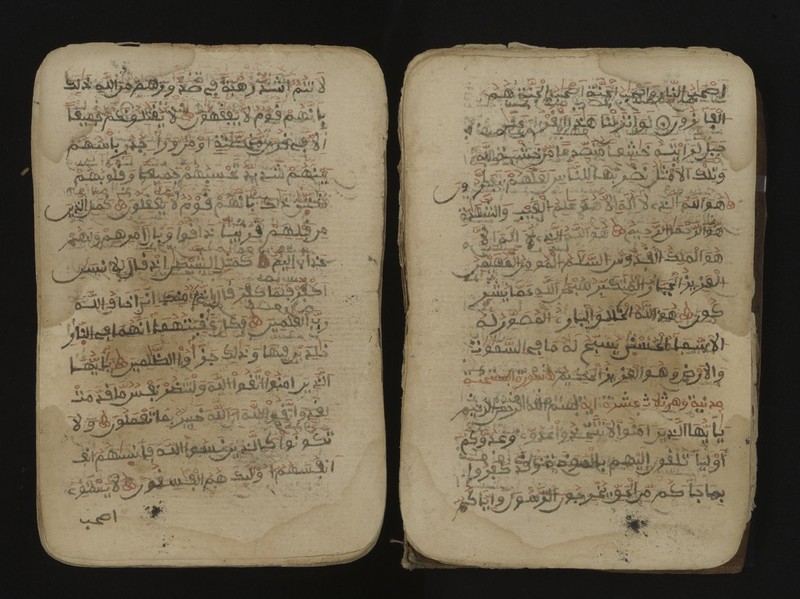 لانتم اشد رهبة في صدورهم من الله ذلك
بانهم قوم لا يفقهون لا يقتلونكم جميعا
الا في قرى محصنة او من ورا جدر باسهم
بينهم شديد تحسبهم جميعا وقلوبهم
شتى ذلك بانهم قوم لا يعقلون كمثل الذين
من قبلهم قريبا ذاقوا وبال امرهم ولهم
عذاب اليم كمثل الشيطن اذ قال للانسن
اكفر فلما كفر قال اني بري منك اني اخاف الله
رب العلمين فكان عقبتهما انهما في النار
خلدين فيها وذلك جزاوا الظلمين يايها
الذين امنوا اتقوا الله ولتنظر نفس ما قدمت
لغد واتقوا الله ان الله خبير بما تعملون ولا
تكونوا كالذين نسوا الله فانسهم
انفسهم اوليك هم الفسقون لا يستوي
اصحب
اصحب النار واصحب الجنة اصحب الجنة هم
الفايزون لو انزلنا هذا القران على
جبل لرايته خشعا متصدعا من خشية الله
وتلك الامثل نضربها للناس لعلهم يتفكرون
هو الله الذي لا اله الا هو علم الغيب والشهدة
هو الرحمن الرحيم هو الله الذي لا اله الا
هو الملك القدوس السلم المومن المهيمن
العزيز الجبار المتكبر سبحن الله عما يشر
كون هو الله الخلق الباري المصور له
الاسما الحسنى يسبح له ما في السموت
والارض وهو العزيز الحكيم سورة الممتحنة
مدنية وهي ثلاث عشرة اية بسم الله الرحمن الرحيم
يايها الذين امنوا لا تتخذوا عدوي وعدوكم
اوليا تلقون اليهم بالمودة وقد كفروا
بما جاكم من الحق يخرجون الرسول واياكم